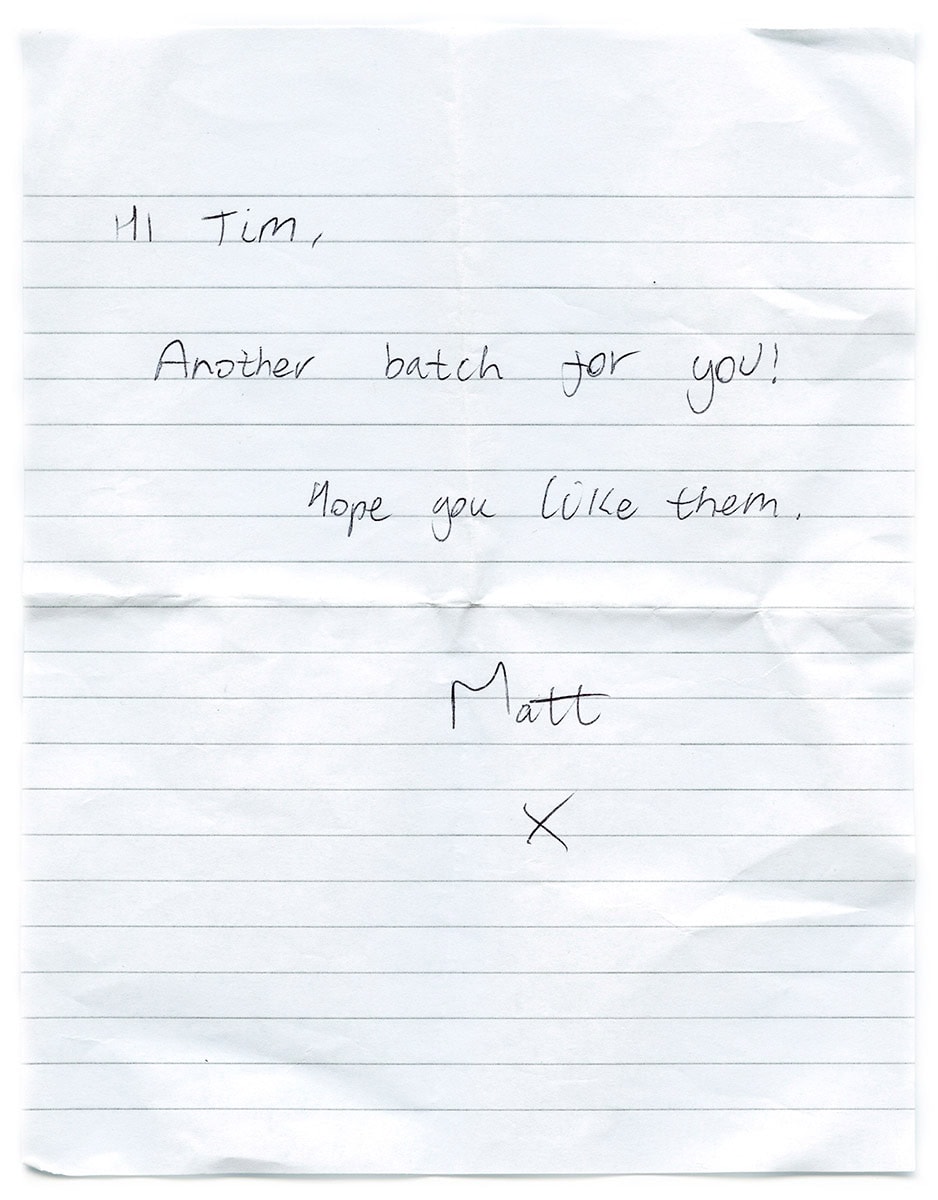 Hi Tim,
Another batch for you!
Hope you like them.
Matt
X